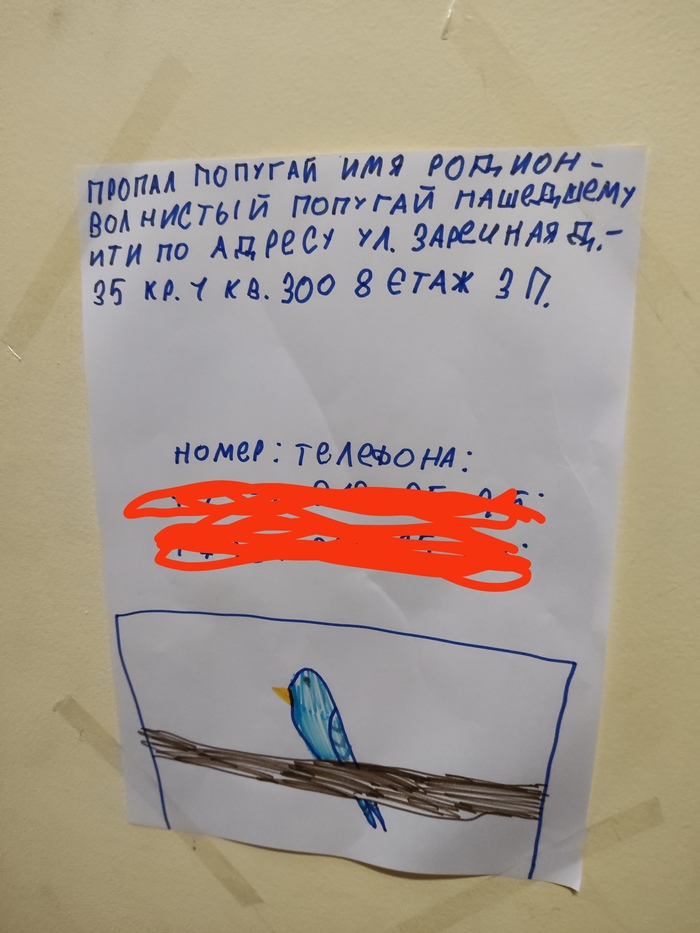 ПРОПАЛ ПОПУГАЙ ИМЯ РОДИОН-
ВОЛНИСТЫЙ ПОПУГАЙ НАШЕДШЕМУ
ИТИ ПО АДРЕСУ УЛ. ЗАРЕЧНАЯ Д.-
35 КР. 1 КВ. 300 8 ЄТАЖ 3 П.
НОМЕР: ТЕЛЕФОНА: